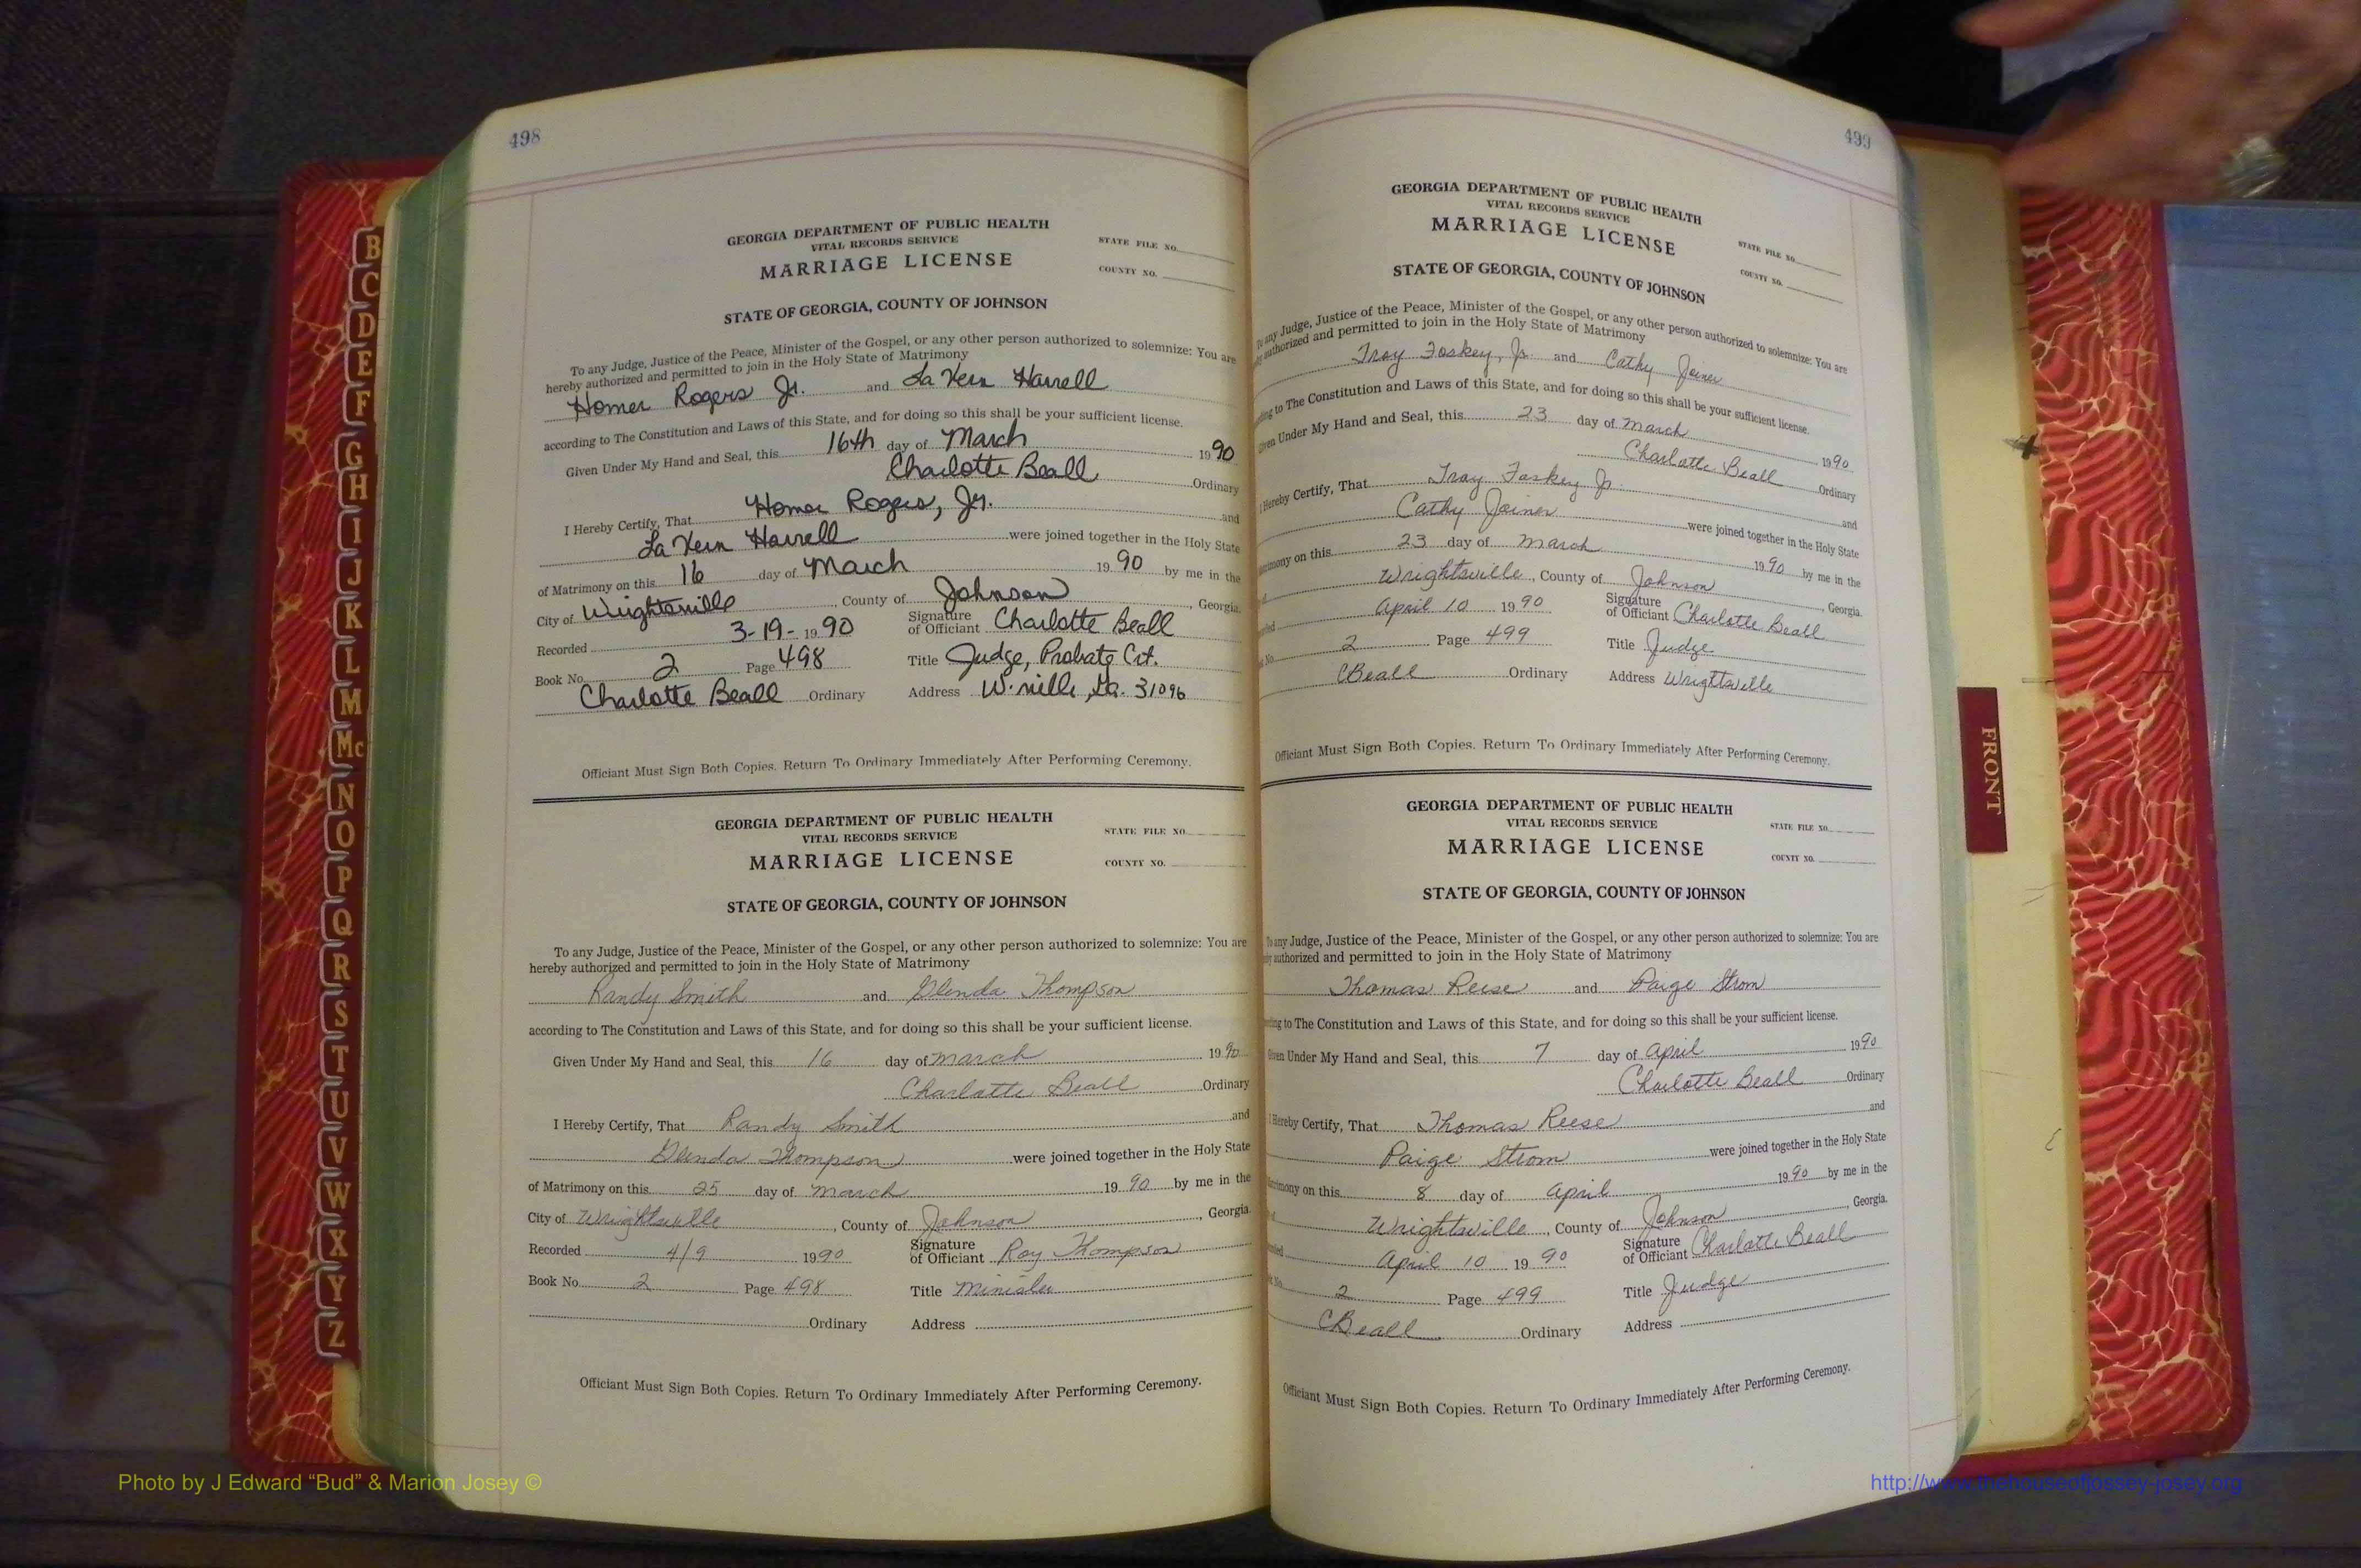 498
GEORGIA DEPARTMENT OF PUBLIC HEALTH
VITAL RECORDS SERVICE
MARRIAGE LICENSE
STATE FILE NO.
COUNTY NO.
STATE OF GEORGIA, COUNTY OF JOHNSON
To any Judge, Justice of the Peace, Minister of the Gospel, or any other person authorized to solemnize: You are
hereby authorized and permitted to join in the Holy State of Matrimony
Homer Rogers Jr. and La Vern Harrell
according to The Constitution and Laws of this State, and for doing so this shall be your sufficient license.
Given Under My Hand and Seal, this 16th day of March 1990
Charlotte Beall Ordinary
I Hereby Certify, That Homer Rogers, Jr. and
La Vern Harrell were joined together in the Holy State
of Matrimony on this 16 day of March 19 90 by me in the
City of Wrightsville, County of Johnson, Georgia.
Recorded 3-19- 19 90 Signature of Officiant Charlotte Beall
Book No. 2 Page 498 Title Judge, Probate Crt.
Charlotte Beall Ordinary Address W.ville, Ga. 31096
Officiant Must Sign Both Copies. Return To Ordinary Immediately After Performing Ceremony.
GEORGIA DEPARTMENT OF PUBLIC HEALTH
VITAL RECORDS SERVICE
MARRIAGE LICENSE
STATE FILE NO.
COUNTY NO.
STATE OF GEORGIA, COUNTY OF JOHNSON
To any Judge, Justice of the Peace, Minister of the Gospel, or any other person authorized to solemnize: You are
hereby authorized and permitted to join in the Holy State of Matrimony
Randy Smith and Glenda Thompson
according to The Constitution and Laws of this State, and for doing so this shall be your sufficient license.
Given Under My Hand and Seal, this 16 day of March 1990
Charlotte Beall Ordinary
I Hereby Certify, That Randy Smith and
Glenda Thompson were joined together in the Holy State
of Matrimony on this 25 day of March 19 90 by me in the
City of Wrightsville, County of Johnson, Georgia.
Recorded 4/9 1990 Signature of Officiant Roy Thompson
Book No. 2 Page 498 Title Minister
Ordinary Address
Officiant Must Sign Both Copies. Return To Ordinary Immediately After Performing Ceremony.
499
GEORGIA DEPARTMENT OF PUBLIC HEALTH
VITAL RECORDS SERVICE
MARRIAGE LICENSE
STATE FILE NO.
COUNTY NO.
STATE OF GEORGIA, COUNTY OF JOHNSON
To any Judge, Justice of the Peace, Minister of the Gospel, or any other person authorized to solemnize: You are
authorized and permitted to join in the Holy State of Matrimony
Troy Foskey, Jr. and Cathy Joiner
to The Constitution and Laws of this State, and for doing so this shall be your sufficient license.
Given Under My Hand and Seal, this 23 day of March 1990
Charlotte Beall Ordinary
I Hereby Certify, That Troy Foskey Jr. and
Cathy Joiner were joined together in the Holy State
on this 23 day of March 1990 by me in the
Wrightsville, County of Johnson, Georgia.
April 10 1990 Signature of Officiant Charlotte Beall
2 Page 499 Title Judge
CBeall Ordinary Address Wrightsville
Officiant Must Sign Both Copies. Return To Ordinary Immediately After Performing Ceremony.
GEORGIA DEPARTMENT OF PUBLIC HEALTH
VITAL RECORDS SERVICE
MARRIAGE LICENSE
STATE FILE NO.
COUNTY NO.
STATE OF GEORGIA, COUNTY OF JOHNSON
To any Judge, Justice of the Peace, Minister of the Gospel, or any other person authorized to solemnize: You are
authorized and permitted to join in the Holy State of Matrimony
Thomas Reese and Paige Strom
to The Constitution and Laws of this State, and for doing so this shall be your sufficient license.
Given Under My Hand and Seal, this 7 day of April 1990
Charlotte Beall Ordinary
I Hereby Certify, That Thomas Reese and
Paige Strom were joined together in the Holy State
on this 8 day of April 1990 by me in the
Wrightsville, County of Johnson, Georgia.
April 10 19 90 Signature of Officiant Charlotte Beall
2 Page 499 Title Judge
CBeall Ordinary Address
Officiant Must Sign Both Copies. Return To Ordinary Immediately After Performing Ceremony.
B
C
D
E
F
G
H
I
J
K
L
M
Mc
N
O
P
Q
R
S
T
U
V
W
X
Y
Z
FRONT
Photo by J Edward “Bud” & Marion Josey ©
http://www.thehouseofjossey-josey.org